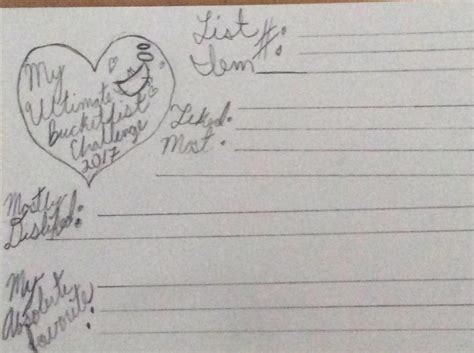 My
Ultimate
Bucketlist
Challenge
2017
List
Item #:
Liked
Most:
Mostly
Disliked:
My
Absolute
Favorite: